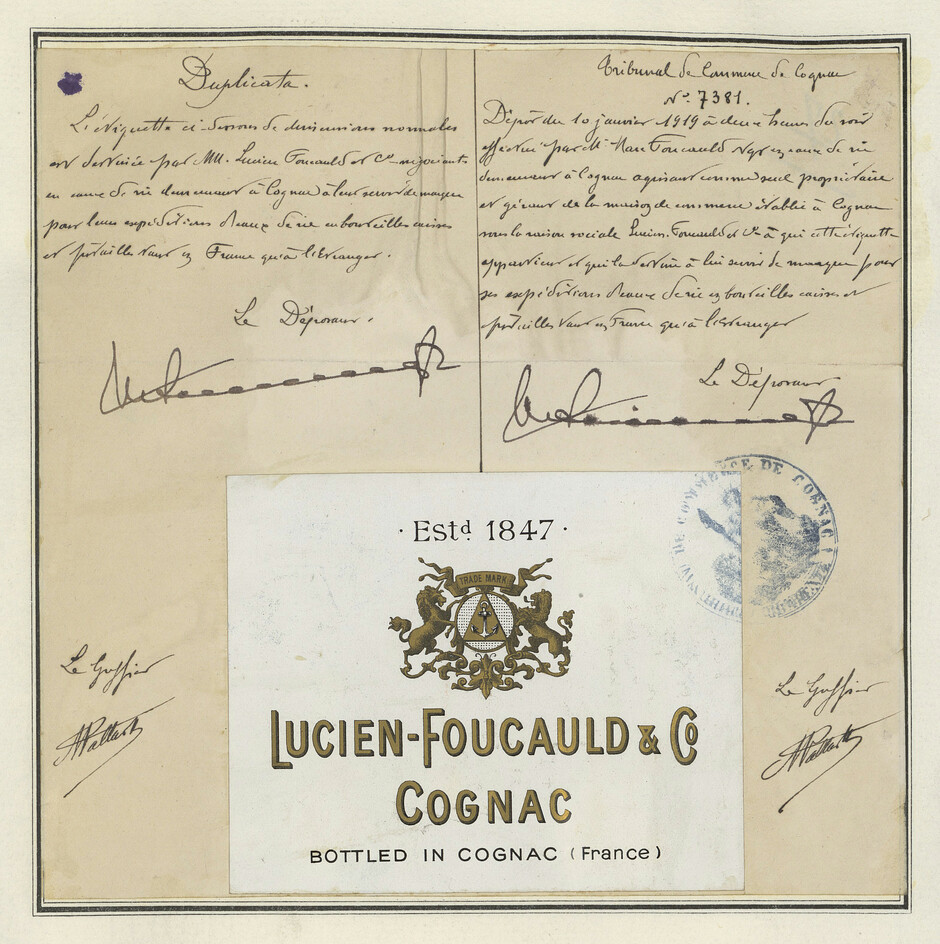 Duplicata.
L'étiquette ci-dessous de dimensions normales
est destinée par MM. Lucien Foucauld et Cie négociants
en eaux de vie demeurant à Cognac à leur servir de marque
pour leurs expéditions d'eaux de vie en bouteilles caisses
et futailles tant en France qu'à l'étranger.
Le Déposant.
Tribunal de Commerce de Cognac
No 7381.
Dépôt du 10 janvier 1919 à deux heures du soir
effectué par Mr Marc Foucauld Negt en eaux de vie
demeurant à Cognac agissant comme seul propriétaire
et gérant de la maison de commerce établie à Cognac
sous la raison sociale Lucien-Foucauld et Cie à qui cette étiquette
appartient et qui la destine à lui servir de marque pour
ses expéditions d'eaux de vie en bouteilles caisses et
futailles tant en France qu'à l'étranger
Le Déposant
DE COMMERCE DE COGNAC
· Estd 1847 ·
TRADE MARK
LUCIEN-FOUCAULD & Co
COGNAC
BOTTLED IN COGNAC (France)
Le Greffier
Le Greffier